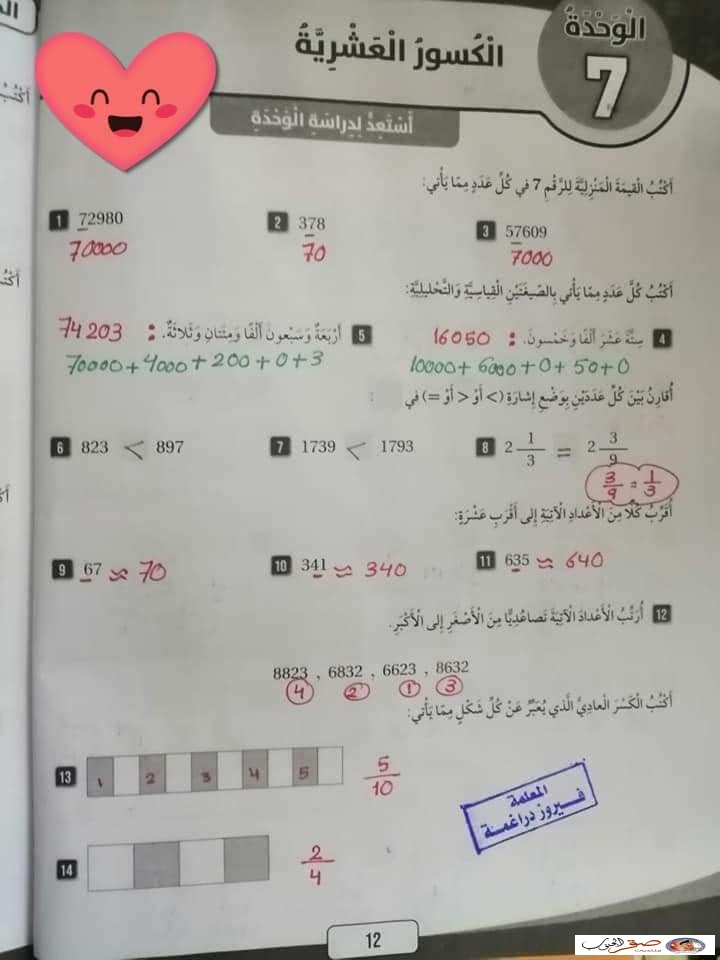 الْوَحْدَةُ
7
الْكُسورُ الْعَشْرِيَّةُ
أَسْتَعِدُّ لِدِراسَةِ الْوَحْدَةِ
أَكْتُبُ الْقيمَةَ الْمَنْزِلِيَّةَ لِلرَّقْمِ 7 في كُلِّ عَدَدٍ مِمّا يَأْتي:
1 72980 2 378 3 57609
70000 70 7000
أَكْتُبُ كُلَّ عَدَدٍ مِمّا يَأْتي بِالصّيغَتَيْنِ الْقِياسِيَّةِ وَالتَّحْليلِيَّةِ:
4 سِتَّةَ عَشَرَ أَلْفًا وَخَمْسونَ. : 16050
10000+6000+0+50+0
5 أَرْبَعَةٌ وَسَبْعونَ أَلْفًا وَمِئَتانِ وَثَلاثَةٌ. : 74203
70000+4000+200+0+3
أُقارِنُ بَيْنَ كُلِّ عَدَدَيْنِ بِوَضْعِ إِشارَةِ (> أَوْ < أَوْ =) في :
6 823 < 897 7 1739 < 1793 8 2 1/3 = 2 3/9
3/9 = 1/3
أُقَرِّبُ كُلًّا مِنَ الْأَعْدادِ الْآتِيَةِ إِلى أَقْرَبِ عَشَرَةٍ:
9 67 ≈ 70 10 341 ≈ 340 11 635 ≈ 640
12 أُرَتِّبُ الْأَعْدادَ الْآتِيَةَ تَصاعُدِيًّا مِنَ الْأَصْغَرِ إِلى الْأَكْبَرِ.
8823 , 6832 , 6623 , 8632
4 2 1 3
أَكْتُبُ الْكَسْرَ الْعادِيَّ الَّذي يُعَبِّرُ عَنْ كُلِّ شَكْلٍ مِمّا يَأْتي:
13 1 2 3 4 5 5/10
المعلمة
فيروز دراغمة
14 2/4
12